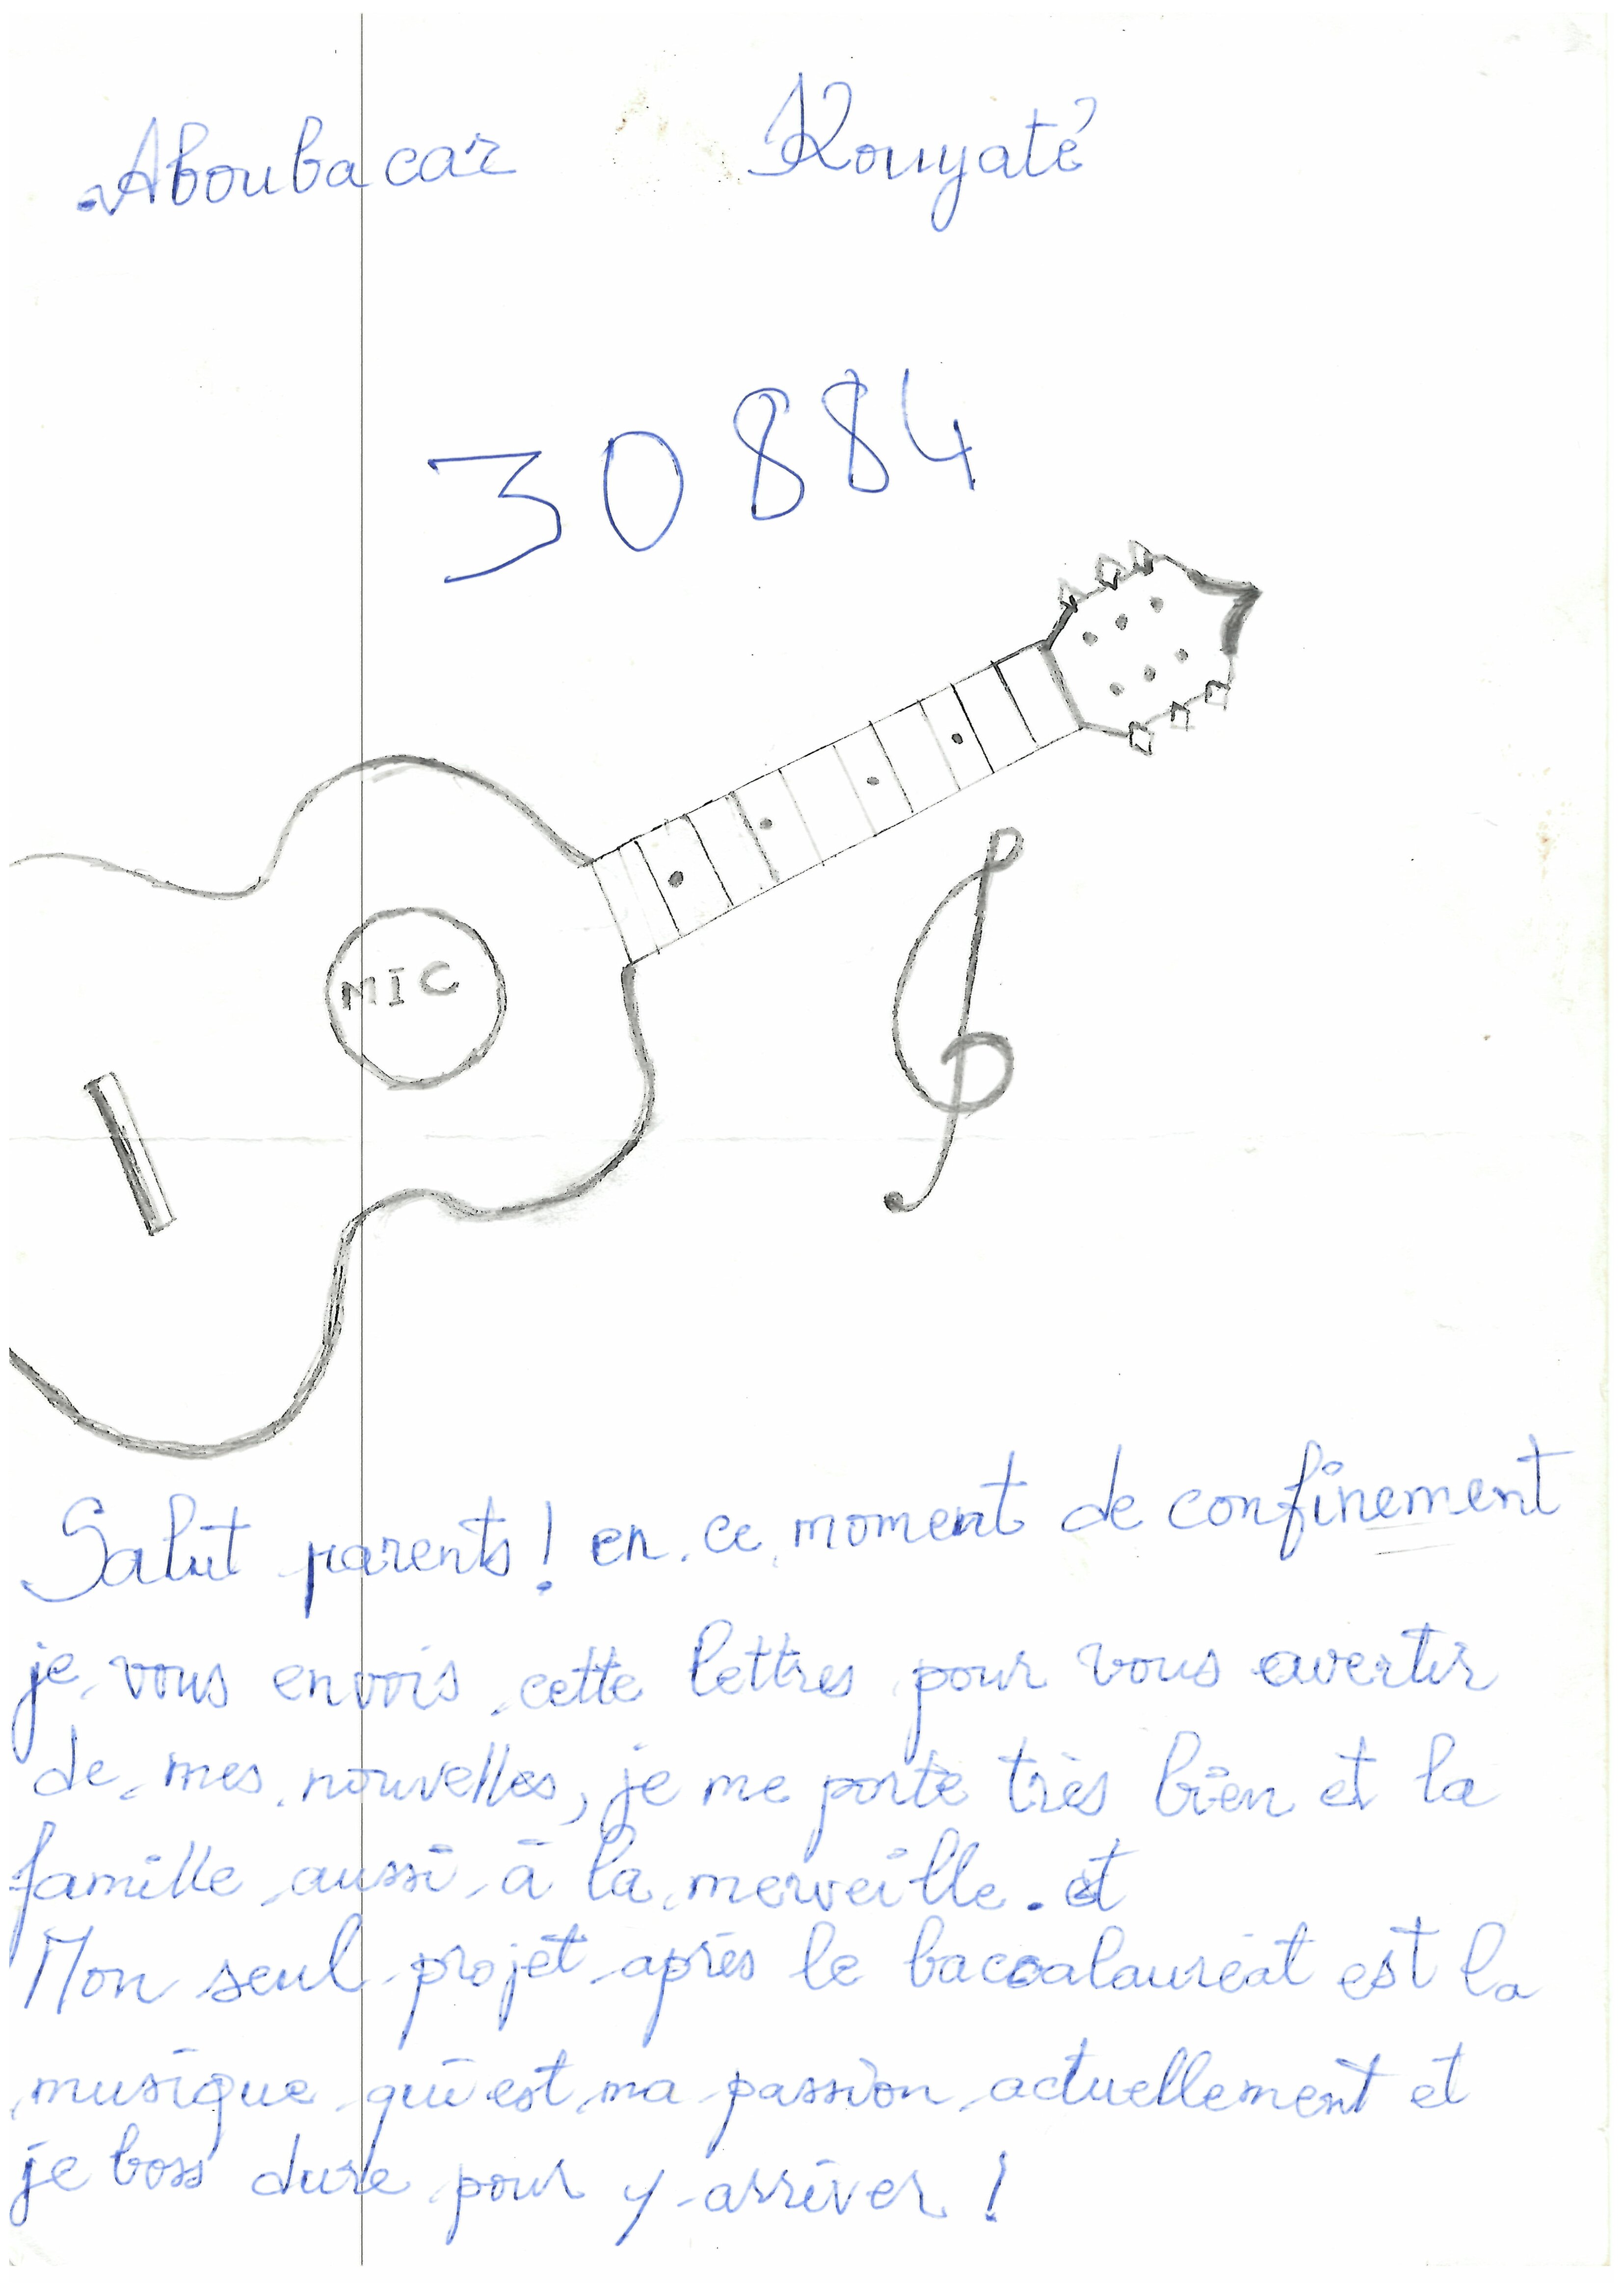 Aboubacar Kouyaté
30884
MIC
Salut parents! en ce moment de confinement
je vous envois cette lettres pour vous avertir
de mes nouvelles, je me porte très bien et la
famille aussi à la merveille. et
Mon seul projet après le baccalauréat est la
musique qui est ma passion actuellement et
je boss dure pour y arriver!